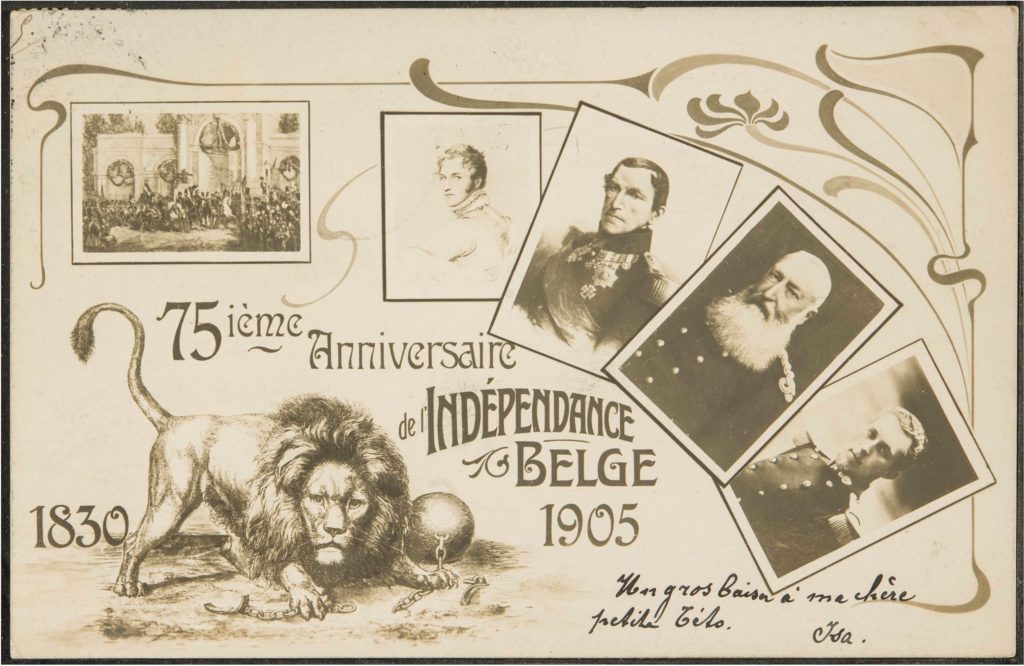 75ième
Anniversaire
de l'INDÉPENDANCE
BELGE
1830
1905
Un gros baiser à ma chère
petite Této.
Isa.